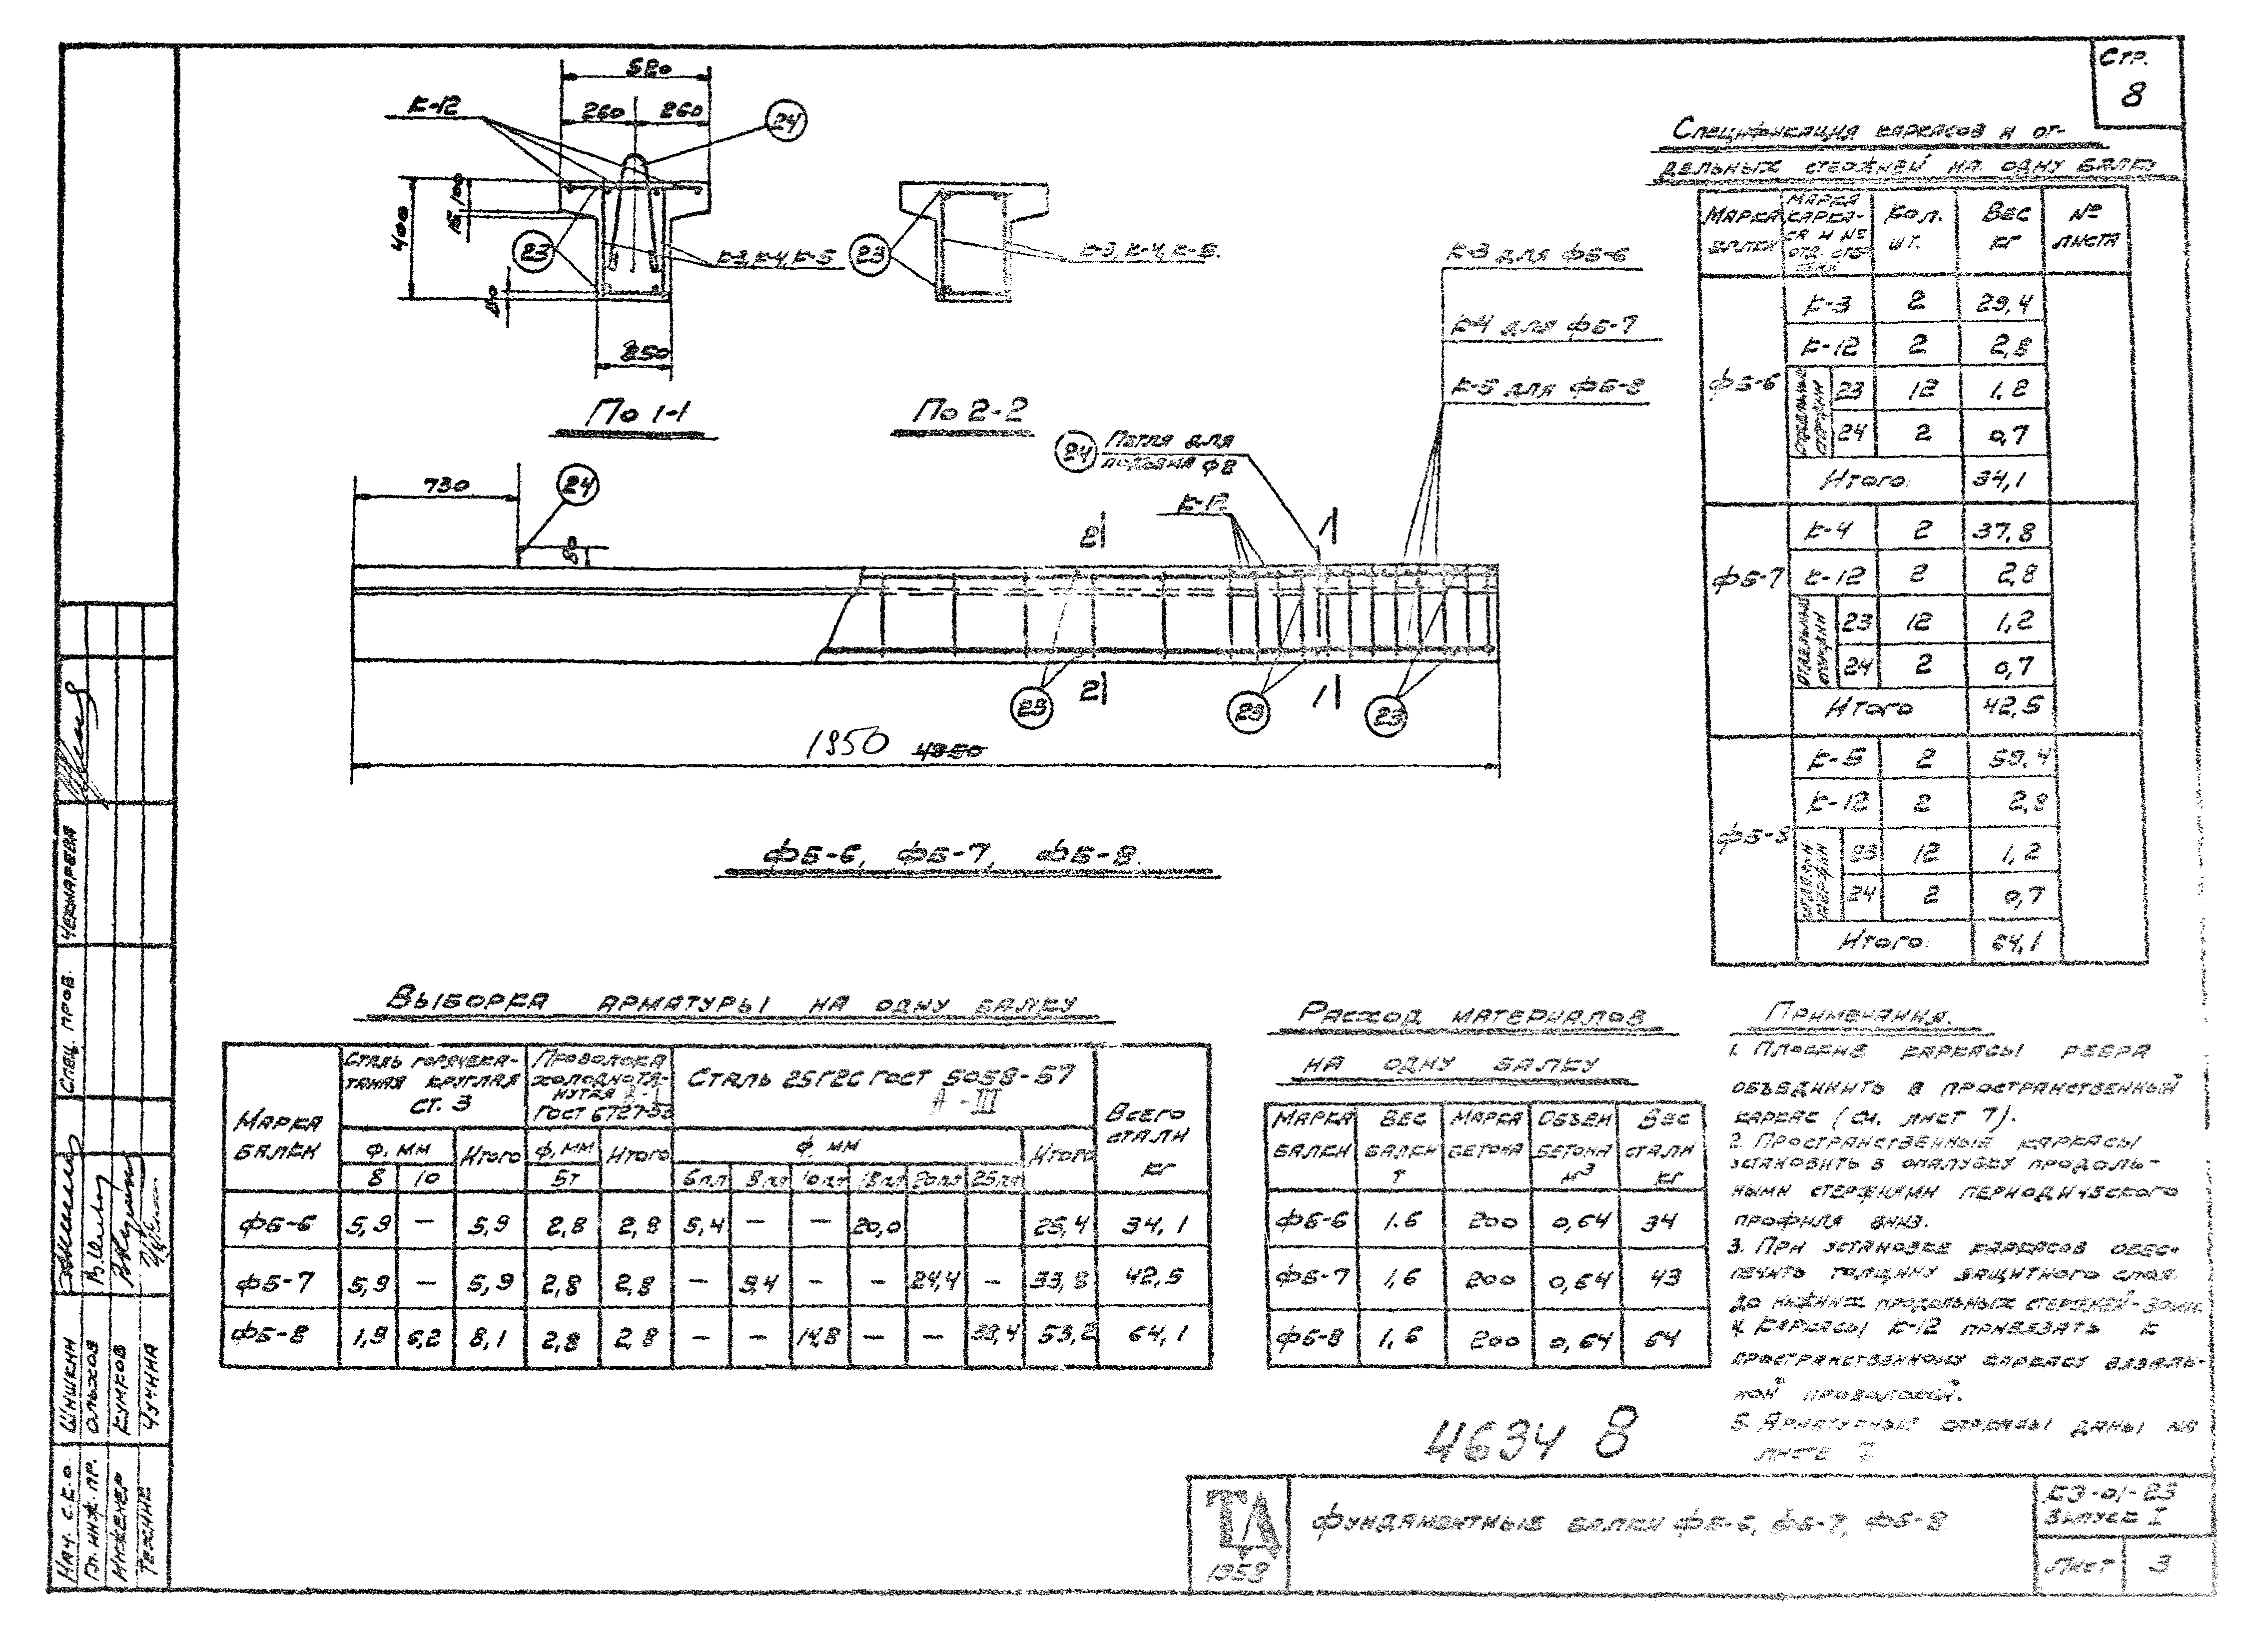 Стр.
8
520
260 260
К-12
24
400
15,100
23
К-3, К-4, К-5
250
По 1-1
23
К-3, К-4, К-5.
По 2-2
К-3 для ФБ-6
К-4 для ФБ-7
К-5 для ФБ-8
24 Петля для
подъема Ф8
К-12
730
24
2 1
23 23 23
2 1
1950 4950
ФБ-6, ФБ-7, ФБ-8.
Спецификация каркасов и от-
дельных стержней на одну балку
Марка балки | Марка каркаса и № отд. стержня | Кол. шт. | Вес кг | № листа
ФБ-6 | К-3 | 2 | 29,4
К-12 | 2 | 2,8
Отдельные стержни | 23 | 12 | 1,2
24 | 2 | 0,7
Итого | 34,1
ФБ-7 | К-4 | 2 | 37,8
К-12 | 2 | 2,8
Отдельные стержни | 23 | 12 | 1,2
24 | 2 | 0,7
Итого | 42,5
ФБ-8 | К-5 | 2 | 59,4
К-12 | 2 | 2,8
23 | 12 | 1,2
24 | 2 | 0,7
Итого. | 64,1
Выборка арматуры на одну балку
Марка балки | Сталь горячекатаная круглая ст. 3 | Проволока холоднотянутая ГОСТ 6727-53 | Сталь 25Г2С ГОСТ 5058-57 А-III | Всего стали кг
Ф, мм | Итого | Ф, мм | Итого | Ф, мм | Итого
8 | 10 | 5т | 6пл | 8пл | 10пл | 18пл | 20пл | 25пл
ФБ-6 | 5,9 | — | 5,9 | 2,8 | 2,8 | 5,4 | — | — | 20,0 | | | 25,4 | 34,1
ФБ-7 | 5,9 | — | 5,9 | 2,8 | 2,8 | — | 9,4 | — | — | 24,4 | — | 33,8 | 42,5
ФБ-8 | 1,9 | 6,2 | 8,1 | 2,8 | 2,8 | — | — | 14,8 | — | — | 38,4 | 53,2 | 64,1
Расход материалов
на одну балку
Марка балки | Вес балки т | Марка бетона | Объем бетона м³ | Вес стали кг
ФБ-6 | 1.6 | 200 | 0,64 | 34
ФБ-7 | 1,6 | 200 | 0,64 | 43
ФБ-8 | 1,6 | 200 | 0,64 | 64
Примечания.
1. Плоские каркасы ребра
объединить в пространственный
каркас (см. лист 7).
2. Пространственные каркасы
установить в опалубку продоль-
ными стержнями периодического
профиля вниз.
3. При установке каркасов обес-
печить толщину защитного слоя
до нижних продольных стержней-30мм.
4. Каркасы К-12 привязать к
пространственному каркасу вязаль-
ной проволокой.
5. Арматурные каркасы даны на
листе 7
4634 8
ТД
1958
Фундаментные балки ФБ-6, ФБ-7, ФБ-8
КЭ-01-23
Выпуск I
Лист 3
Спец. пров. Чекмарева
Нач. С.К.О. Шишкин
Гл. инж. пр. Ольхов
Инженер Кумков
Техник Чучина